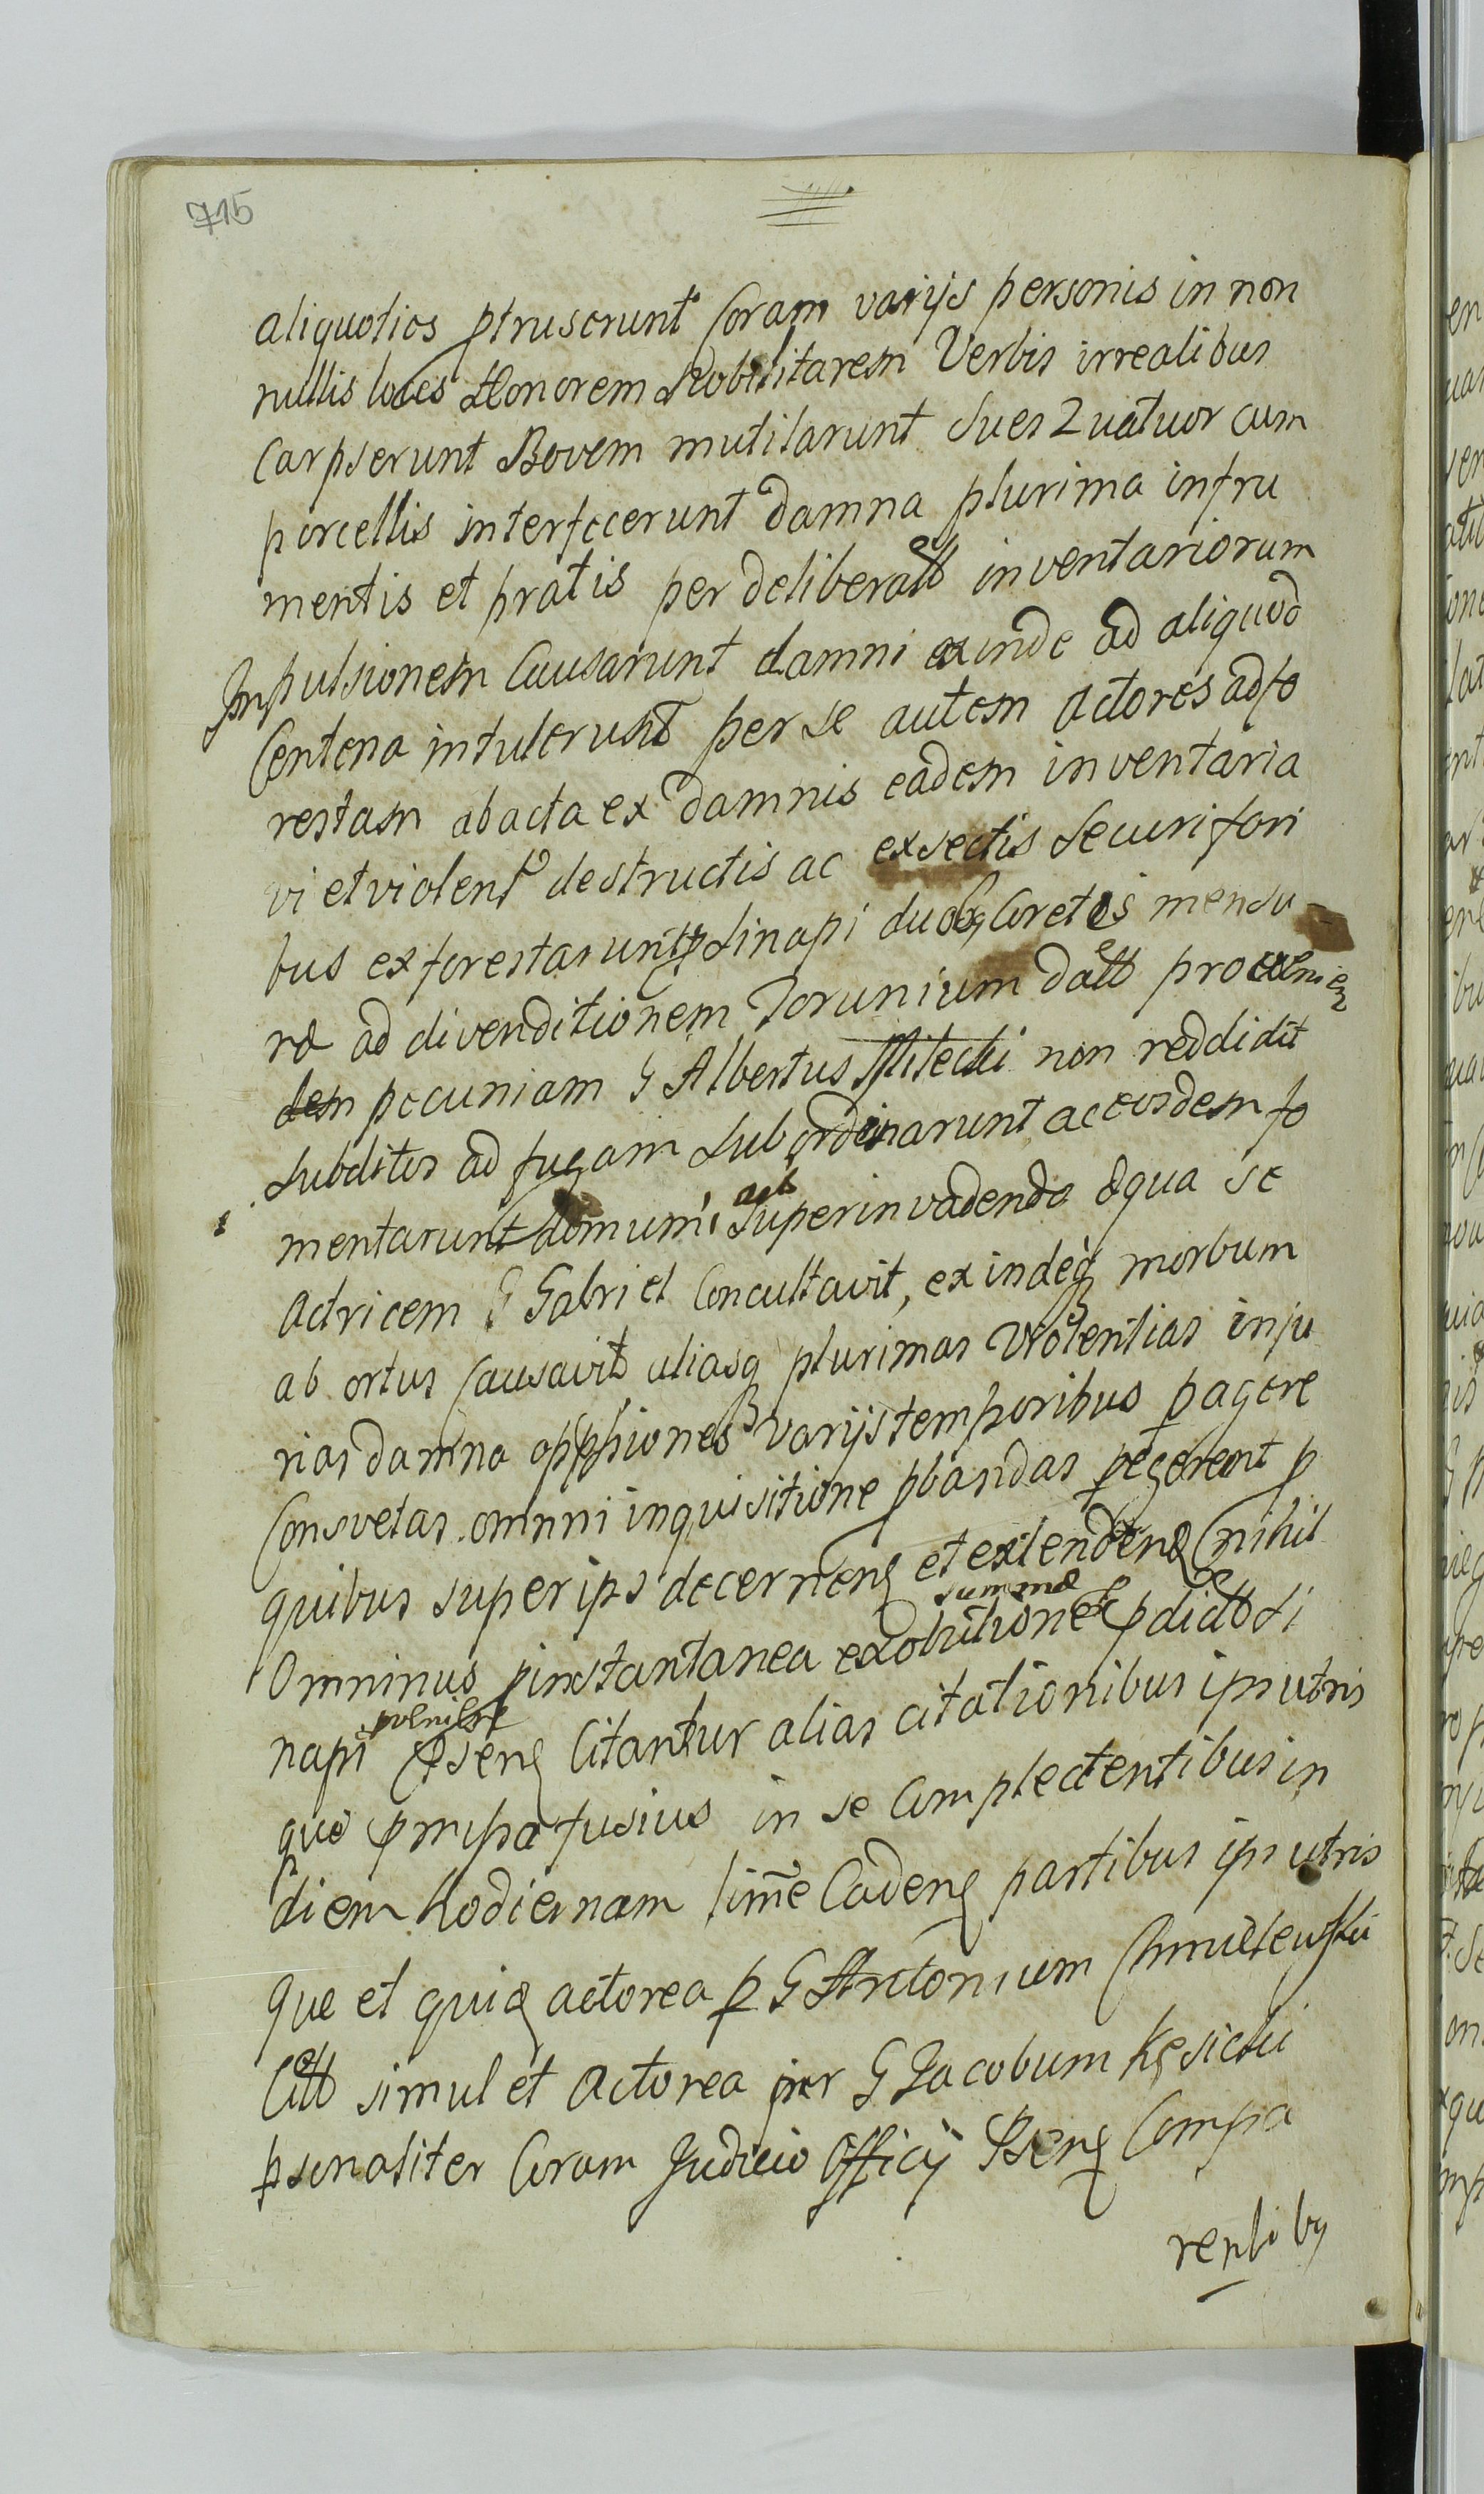 715
aliquoties ptruserunt Coram varijs personis in non
nullis locis Honorem Nobilitarem Verbis irrealibus
Carpserunt Bovem mutilarunt Sues Quatuor cum
porcellis interfecerunt damna plurima in fru
mentis et pratis per deliberatt inventariorum
Impulsionem Causarunt damni exinde ad aliquod
Centena intulerunt per se autem Actores ad fo
restam abacta ex damnis eadem inventaria
vi et violent destructis ac exsectis Securi fori
bus exforestarunt p Sinapi duobq Coretis mensu
ræ ad divenditionem Torunium datt pro
dem pecuniam G Albertus Milecki non reddidit
Subditos ad fugam Subordinarunt ac eosdem fo
mentarunt domum Super invadendo æqua se
Actricem G Gabriel Concultavit, ex indeq morbum
ab ortus Causavit aliasq plurimas Violentias inju
rias damna oppsiones varijs temporibus pagere
Consvetas omnni inquisitione pbandas pegerent p
quibus super ips decernen et extenden nihil
Omninus pinstantanea exolutione summæ pdictt Si
napi Psen Citantur alias citationibus ips utris
que pmpa fusius in se Complectentibus in
diem hodiernam lime Caden partibus ips utris
que et quid actorea p G Antonium Chmielewski
Citt simul et Actorea per G Jacobum Kęsicki
psonaliter Coram Judicio Officij Psen Compa
rentibq